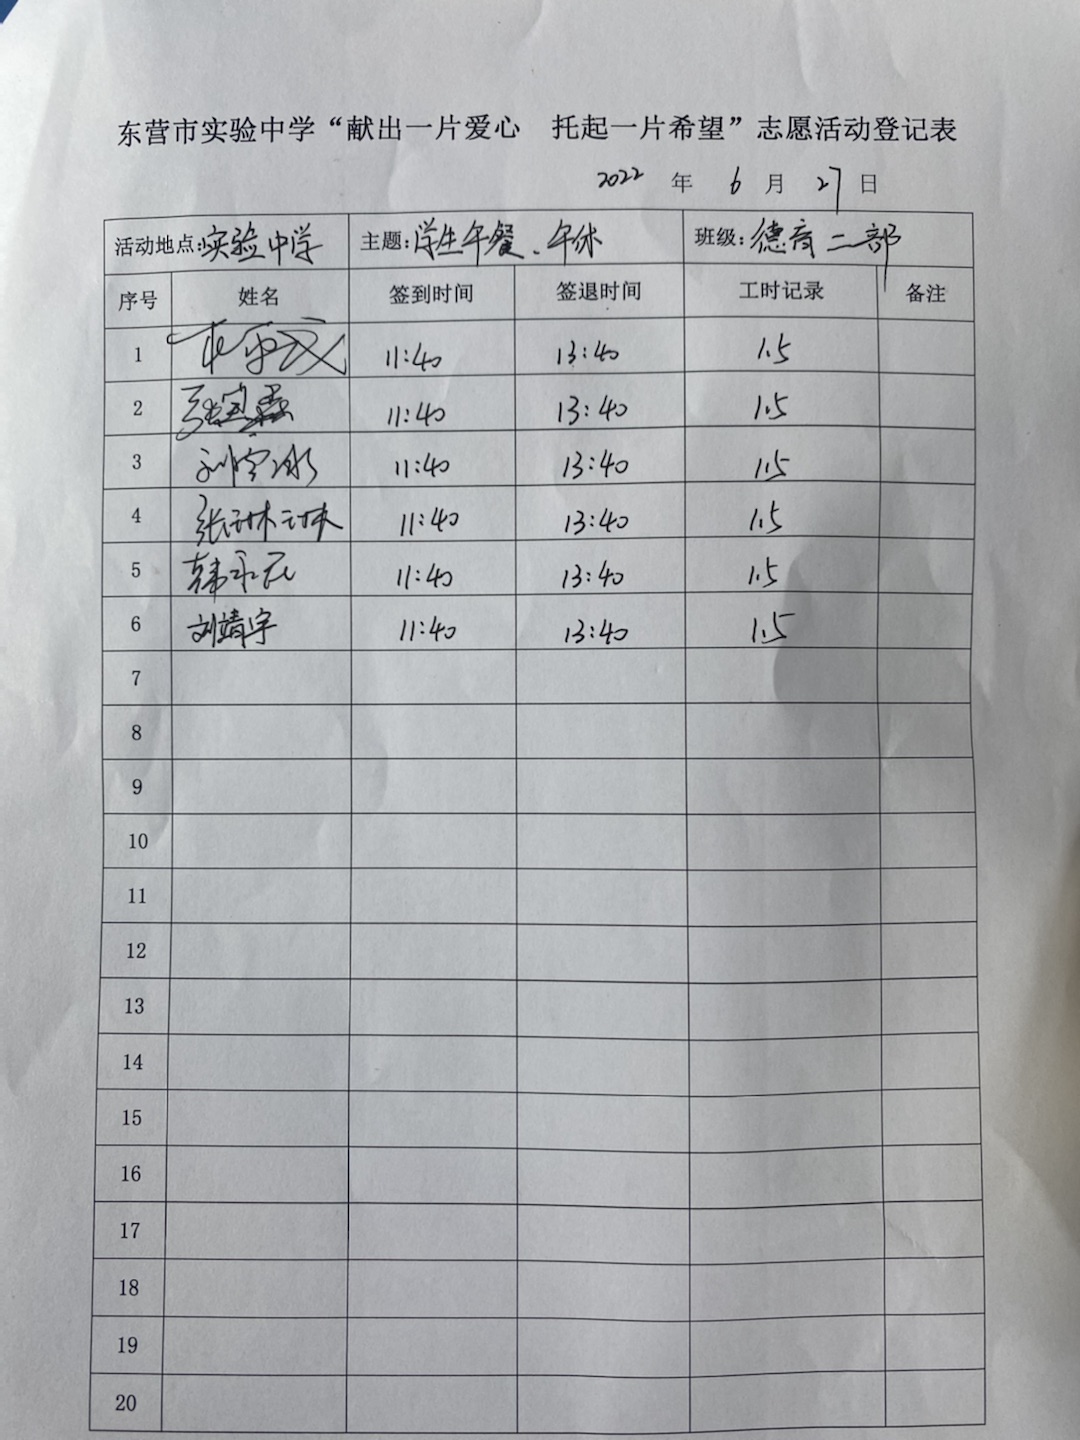 东营市实验中学“献出一片爱心　托起一片希望”志愿活动登记表
2022 年 6 月 27 日
活动地点:实验中学 主题:学生午餐、午休 班级:德育二部
序号 姓名 签到时间 签退时间 工时记录 备注
1 11:40 13:40 1.5
2 11:40 13:40 1.5
3 11:40 13:40 1.5
4 张琳琳 11:40 13:40 1.5
5 11:40 13:40 1.5
6 刘靖宇 11:40 13:40 1.5
7
8
9
10
11
12
13
14
15
16
17
18
19
20